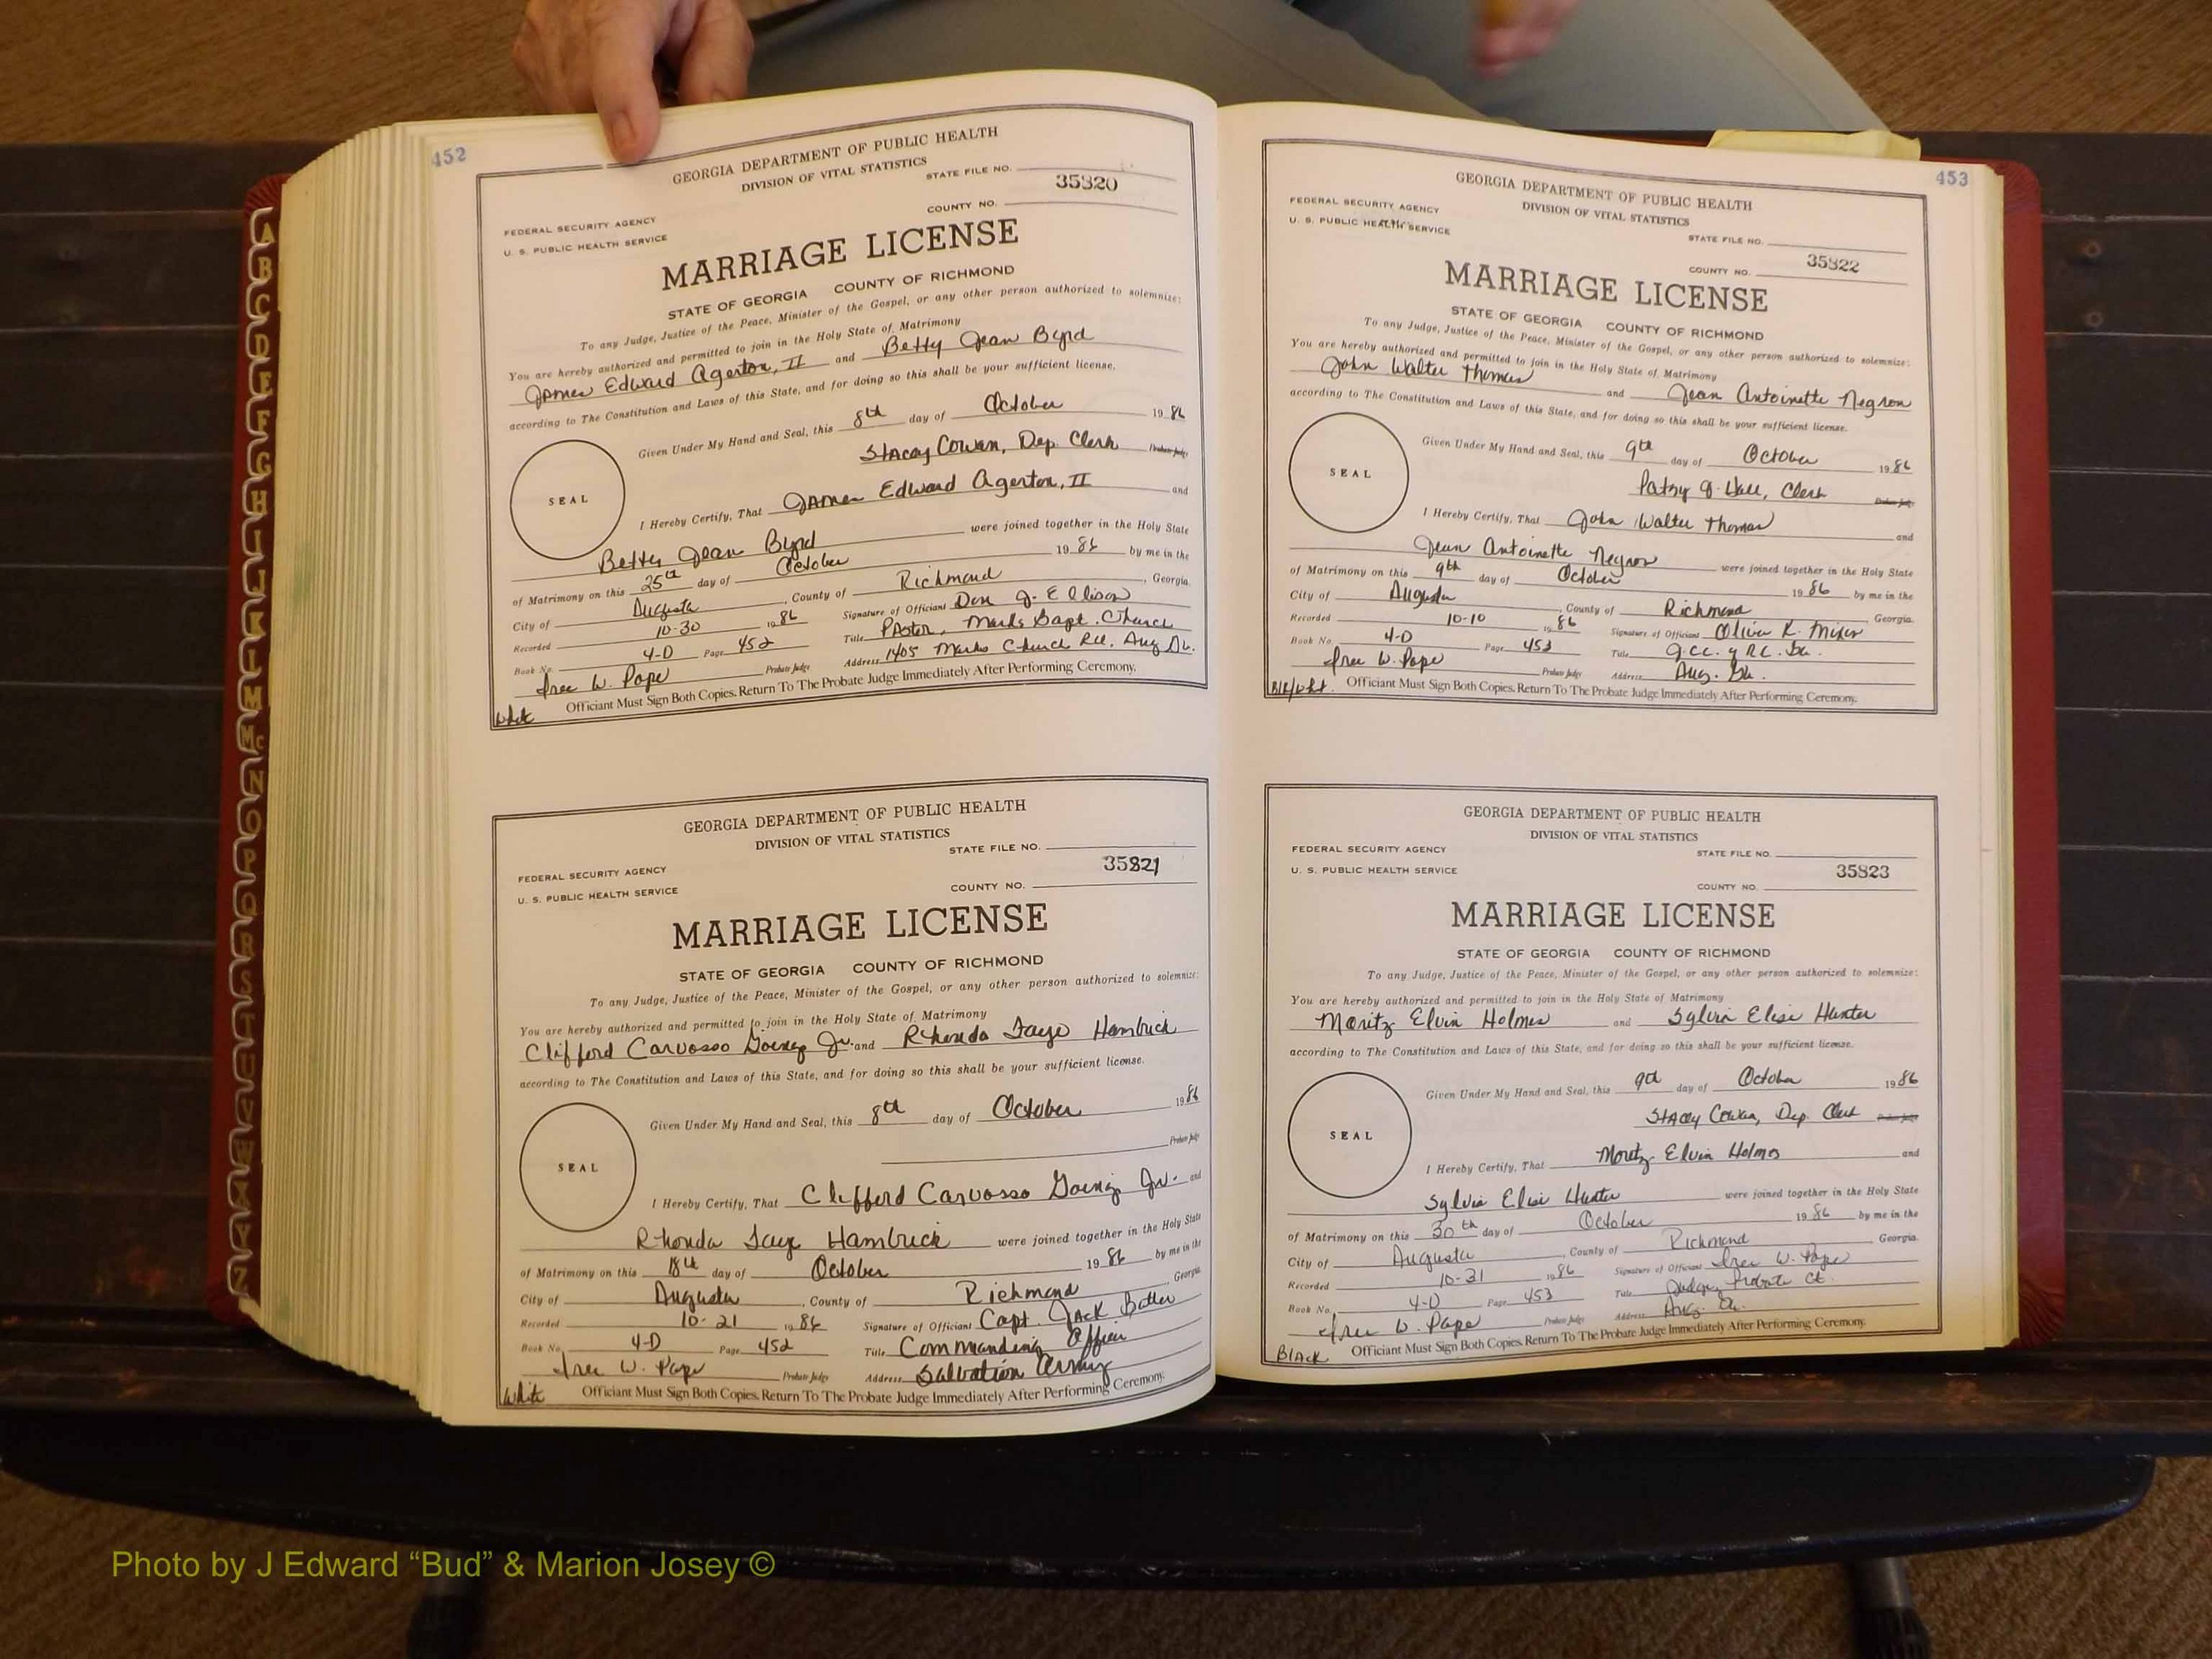 452
GEORGIA DEPARTMENT OF PUBLIC HEALTH
DIVISION OF VITAL STATISTICS
STATE FILE NO.
35820
FEDERAL SECURITY AGENCY
COUNTY NO.
U. S. PUBLIC HEALTH SERVICE
MARRIAGE LICENSE
STATE OF GEORGIA COUNTY OF RICHMOND
To any Judge, Justice of the Peace, Minister of the Gospel, or any other person authorized to solemnize:
You are hereby authorized and permitted to join in the Holy State of Matrimony
James Edward Agerton, II and Betty Jean Byrd
according to The Constitution and Laws of this State, and for doing so this shall be your sufficient license.
Given Under My Hand and Seal, this 8th day of October 1986
Stacey Cowan, Dep. Clerk Probate Judge
SEAL
I Hereby Certify, That James Edward Agerton, II and
Betty Jean Byrd were joined together in the Holy State
of Matrimony on this 25th day of October 1986 by me in the
City of Augusta, County of Richmond, Georgia.
Recorded 10-30 1986 Signature of Officiant Don J. Ellison
Book No. 4-D Page 452 Title Pastor, Marks Bapt. Church
Iree W. Pope Probate Judge Address 1405 Marks Church Rd. Aug Ga.
Officiant Must Sign Both Copies. Return To The Probate Judge Immediately After Performing Ceremony.
White
GEORGIA DEPARTMENT OF PUBLIC HEALTH
DIVISION OF VITAL STATISTICS
STATE FILE NO.
35821
FEDERAL SECURITY AGENCY
COUNTY NO.
U. S. PUBLIC HEALTH SERVICE
MARRIAGE LICENSE
STATE OF GEORGIA COUNTY OF RICHMOND
To any Judge, Justice of the Peace, Minister of the Gospel, or any other person authorized to solemnize:
You are hereby authorized and permitted to join in the Holy State of Matrimony
Clifford Carvosso Goings Jr. and Rhonda Faye Hambrick
according to The Constitution and Laws of this State, and for doing so this shall be your sufficient license.
Given Under My Hand and Seal, this 8th day of October 1986
Probate Judge
SEAL
I Hereby Certify, That Clifford Carvosso Goings Jr. and
Rhonda Faye Hambrick were joined together in the Holy State
of Matrimony on this 18th day of October 1986 by me in the
City of Augusta, County of Richmond, Georgia
Recorded 10-21 1986 Signature of Officiant Capt. Jack Butler
Book No. 4-D Page 452 Title Commanding Officer
Iree W. Pope Probate Judge Address Salvation Army
Officiant Must Sign Both Copies. Return To The Probate Judge Immediately After Performing Ceremony.
White
453
GEORGIA DEPARTMENT OF PUBLIC HEALTH
DIVISION OF VITAL STATISTICS
FEDERAL SECURITY AGENCY
U. S. PUBLIC HEALTH SERVICE
STATE FILE NO.
35822
COUNTY NO.
MARRIAGE LICENSE
STATE OF GEORGIA COUNTY OF RICHMOND
To any Judge, Justice of the Peace, Minister of the Gospel, or any other person authorized to solemnize:
You are hereby authorized and permitted to join in the Holy State of Matrimony
John Walter Thomas and Jean Antoinette Negron
according to The Constitution and Laws of this State, and for doing so this shall be your sufficient license.
Given Under My Hand and Seal, this 9th day of October 1986
Patsy J. Hall, Clerk Probate Judge
SEAL
I Hereby Certify, That John Walter Thomas and
Jean Antoinette Negron were joined together in the Holy State
of Matrimony on this 9th day of October 1986 by me in the
City of Augusta, County of Richmond Georgia.
Recorded 10-10 1986 Signature of Officiant Oliver K. Mixon
Book No. 4-D Page 453 Title J.C.C. of R.C. Ga.
Iree W. Pope Probate Judge Address Aug. Ga.
Blk/Wht Officiant Must Sign Both Copies. Return To The Probate Judge Immediately After Performing Ceremony.
GEORGIA DEPARTMENT OF PUBLIC HEALTH
DIVISION OF VITAL STATISTICS
FEDERAL SECURITY AGENCY
STATE FILE NO.
U. S. PUBLIC HEALTH SERVICE
35823
COUNTY NO.
MARRIAGE LICENSE
STATE OF GEORGIA COUNTY OF RICHMOND
To any Judge, Justice of the Peace, Minister of the Gospel, or any other person authorized to solemnize:
You are hereby authorized and permitted to join in the Holy State of Matrimony
Moritz Elvin Holmes and Sylvia Elise Hunter
according to The Constitution and Laws of this State, and for doing so this shall be your sufficient license.
Given Under My Hand and Seal, this 9th day of October 1986
Stacey Cowan, Dep. Clerk Probate Judge
SEAL
I Hereby Certify, That Moritz Elvin Holmes and
Sylvia Elise Hunter were joined together in the Holy State
of Matrimony on this 30th day of October 1986 by me in the
City of Augusta, County of Richmond Georgia.
Recorded 10-31 1986 Signature of Officiant Iree W. Pope
Book No. 4-D Page 453 Title Judge, Probate Ct.
Iree W. Pope Probate Judge Address Aug. Ga.
Black Officiant Must Sign Both Copies. Return To The Probate Judge Immediately After Performing Ceremony.
A
B
C
D
E
F
G
H
I
J
K
L
M
Mc
N
O
P
Q
R
S
T
U
V
W
X
Y
Z
Photo by J Edward “Bud” & Marion Josey ©